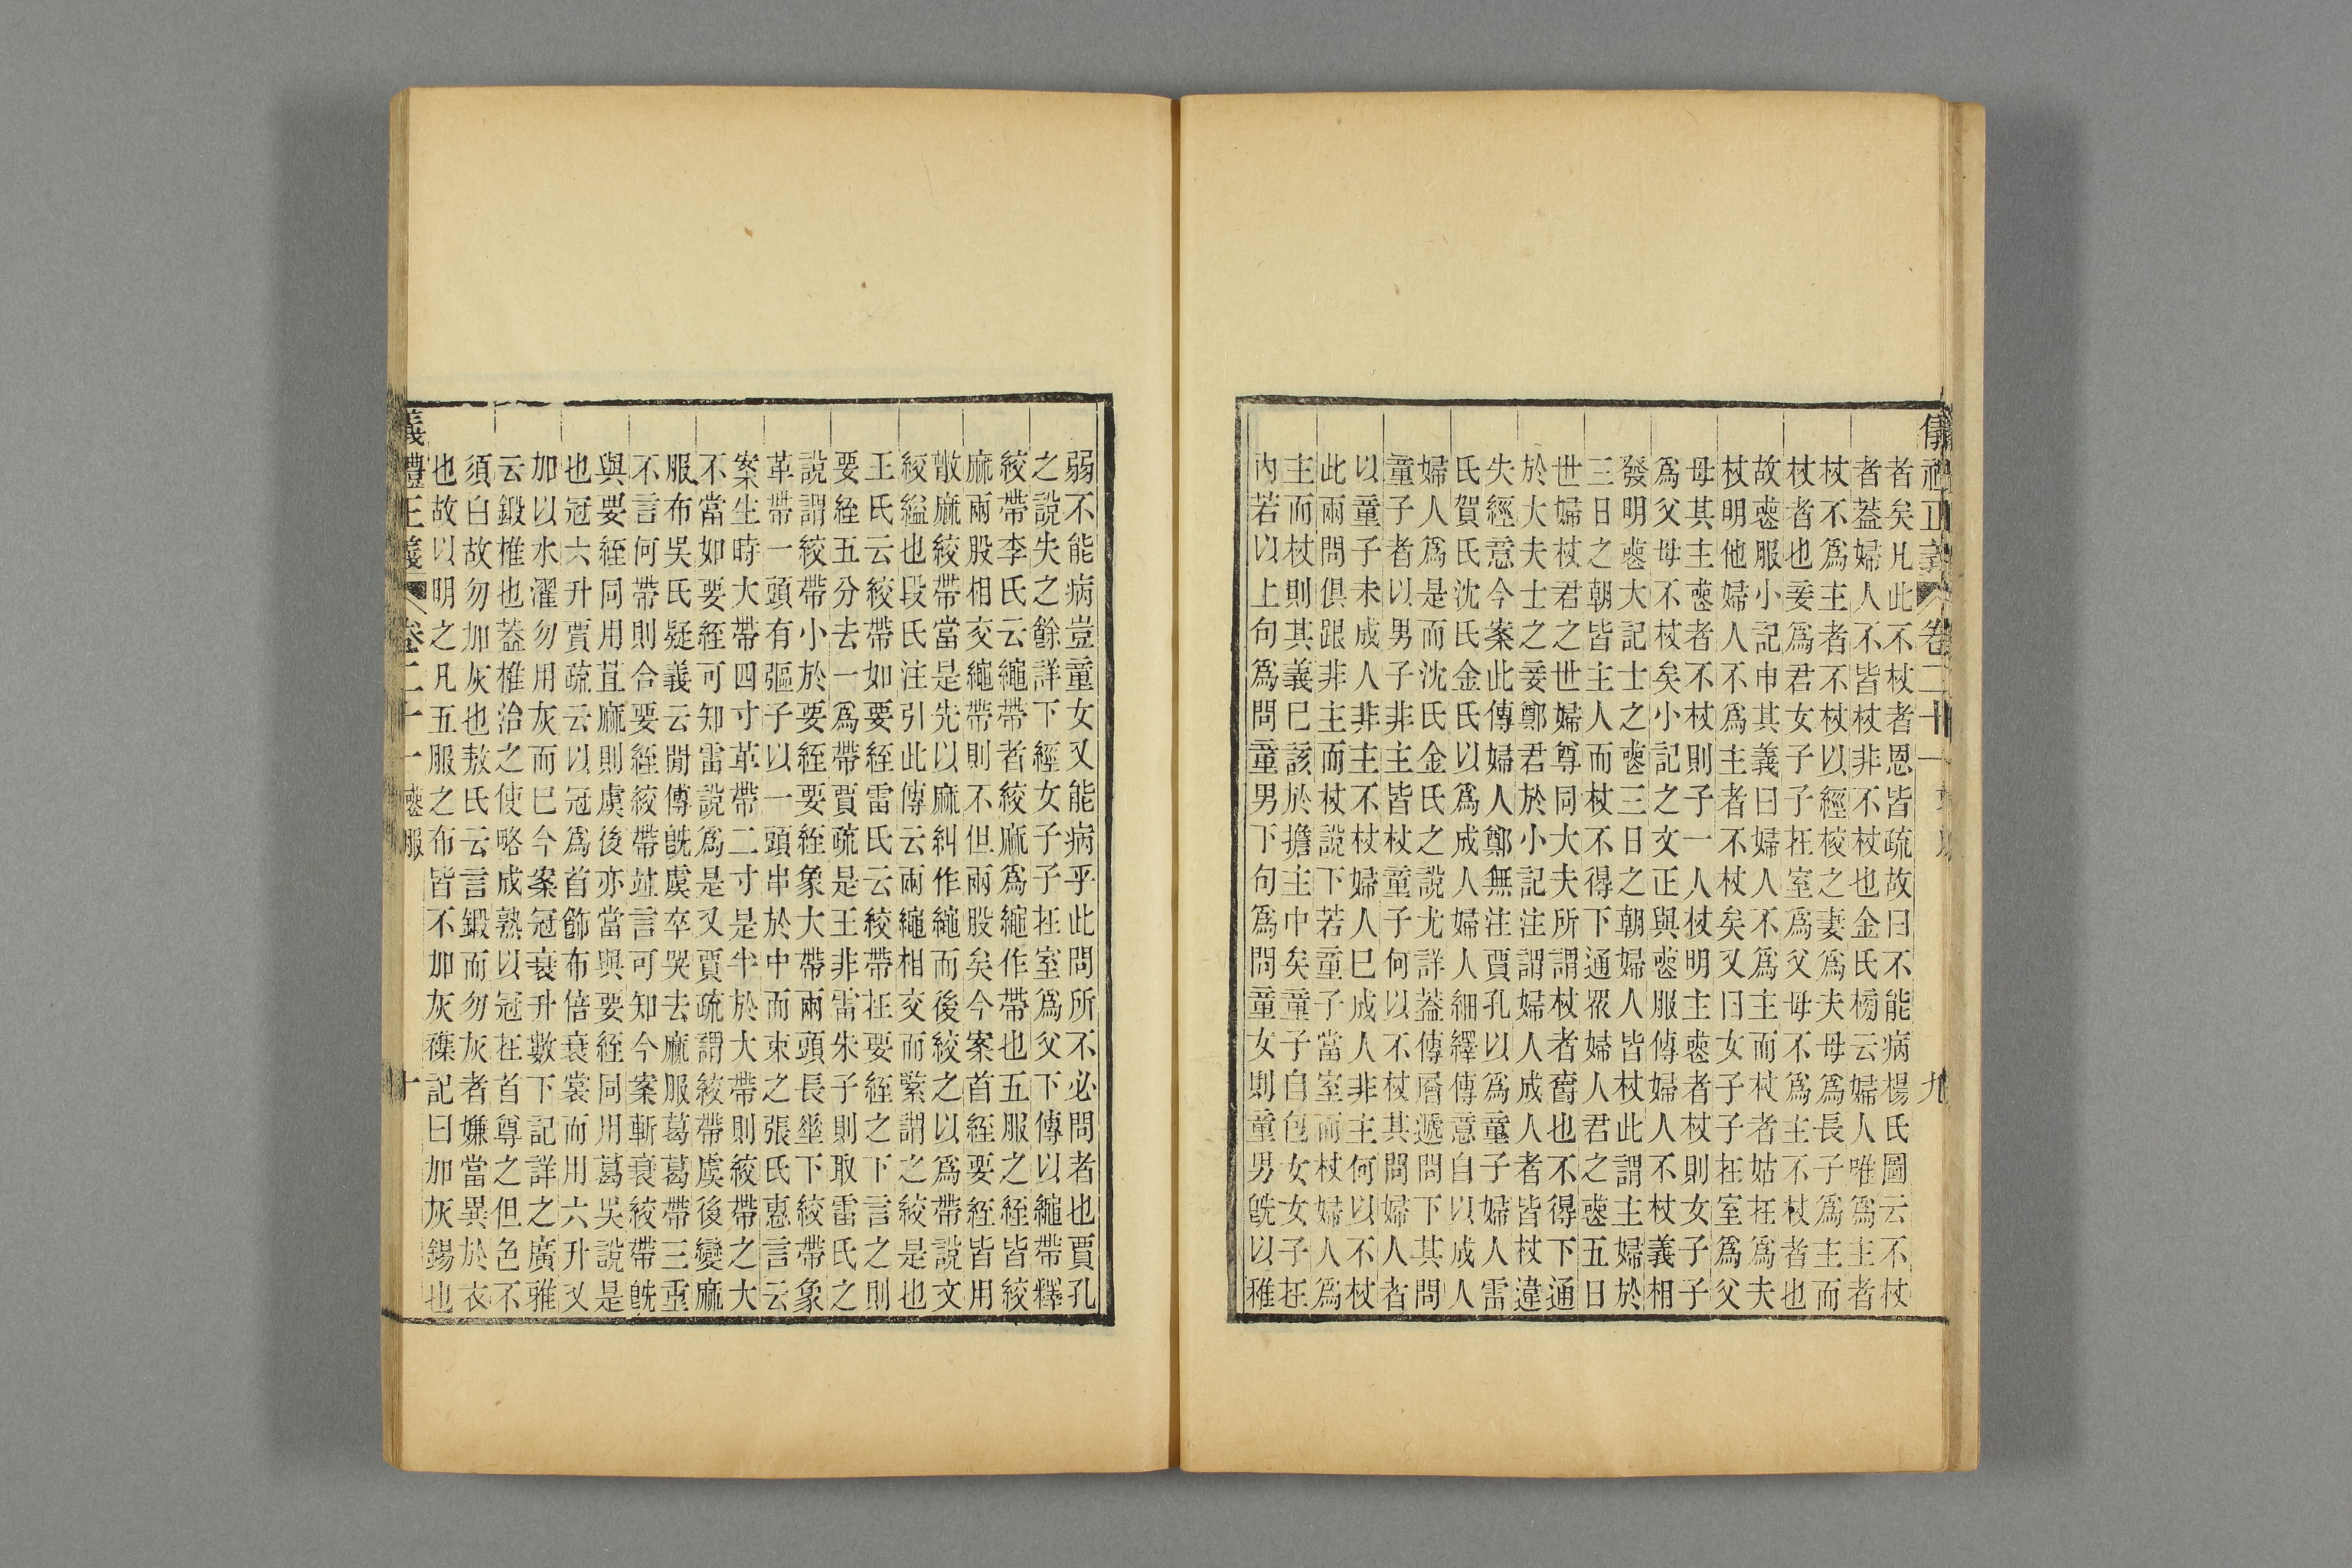 儀禮正義 卷二十一 喪服 九
者矣凡此不杖者恩皆疏故曰不能病楊氏圖云不杖
者蓋婦人不皆杖非不杖也金氏榜云婦人唯爲主者
杖不爲主者不杖以經校之妻爲夫母爲長子爲主而
杖者也妾爲君女子子在室爲父母不爲主不杖者也
故喪服小記申其義曰婦人不爲主而杖者姑在爲夫
杖明他婦人不爲主者不杖矣又曰女子子在室爲父
母其主喪者不杖則子一人杖明主喪者杖則女子子
爲父母不杖矣小記之文正與喪服傳婦人不杖義相
發明喪大記士之喪三日之朝婦人皆杖此謂主婦於
三日之朝皆主人而杖不得下通眾婦人君之喪五日
世婦杖君之世婦尊同大夫所謂杖者齊也不得下通
於大夫士之妾鄭君於小記注謂婦人成人者皆杖違
失經意今案此傳婦人鄭無注賈孔以爲童子婦人雷
氏賀氏沈氏金氏以爲成人婦人細繹傳意自以成人
婦人爲是而沈氏金氏之說尤詳蓋傳層遞問下其問
童子者以男子非主皆杖童子何以不杖其問婦人者
以童子未成人非主不杖婦人已成人非主何以不杖
此兩問俱跟非主而杖說下若童子當室而杖婦人爲
主而杖則其義已該於擔主中矣童子自包女女子在
內若以上句爲問童男下句爲問童女則童男旣以稚
弱不能病豈童女又能病乎此問所不必問者也賈孔
之說失之餘詳下經女子子在室爲父下傳以繩帶釋
絞帶李氏云繩帶者絞麻爲繩作帶也五服之絰皆絞
麻兩股相交繩帶則不但兩股矣今案首絰要絰皆用
散麻絞帶當是先以麻糾作繩而後絞之以爲帶說文
絞縊也段氏注引此傳云兩繩相交而緊謂之絞是也
王氏云絞帶如要絰雷氏云絞帶在要絰之下言之則
要絰五分去一爲帶賈疏是王非雷朱子則取雷氏之
說謂絞帶小於要絰要絰象大帶兩頭長垂下絞帶象
革帶一頭有彄子以一頭串於中而束之張氏惠言云
案生時大帶四寸革帶二寸是半於大帶則絞帶之大
不當如要絰可知雷說爲是又賈疏謂絞帶虞後變麻
服布吳氏疑義云閒傳旣虞卒哭去麻服葛葛帶三重
不言何帶則合要絰絞帶竝言可知今案斬衰絞帶旣
與要絰同用苴麻則虞後亦當與要絰同用葛吳說是
也冠六升賈疏云以冠爲首飾布倍衰裳而用六升又
加以水濯勿用灰而已今案冠衰升數下記詳之廣雅
云鍛椎也蓋椎治之使略成熟以冠在首尊之但色不
須白故勿加灰也敖氏云言鍛而勿灰者嫌當異於衣
也故以明之凡五服之布皆不加灰襍記曰加灰錫也
義禮正義 卷二十一 喪服 十